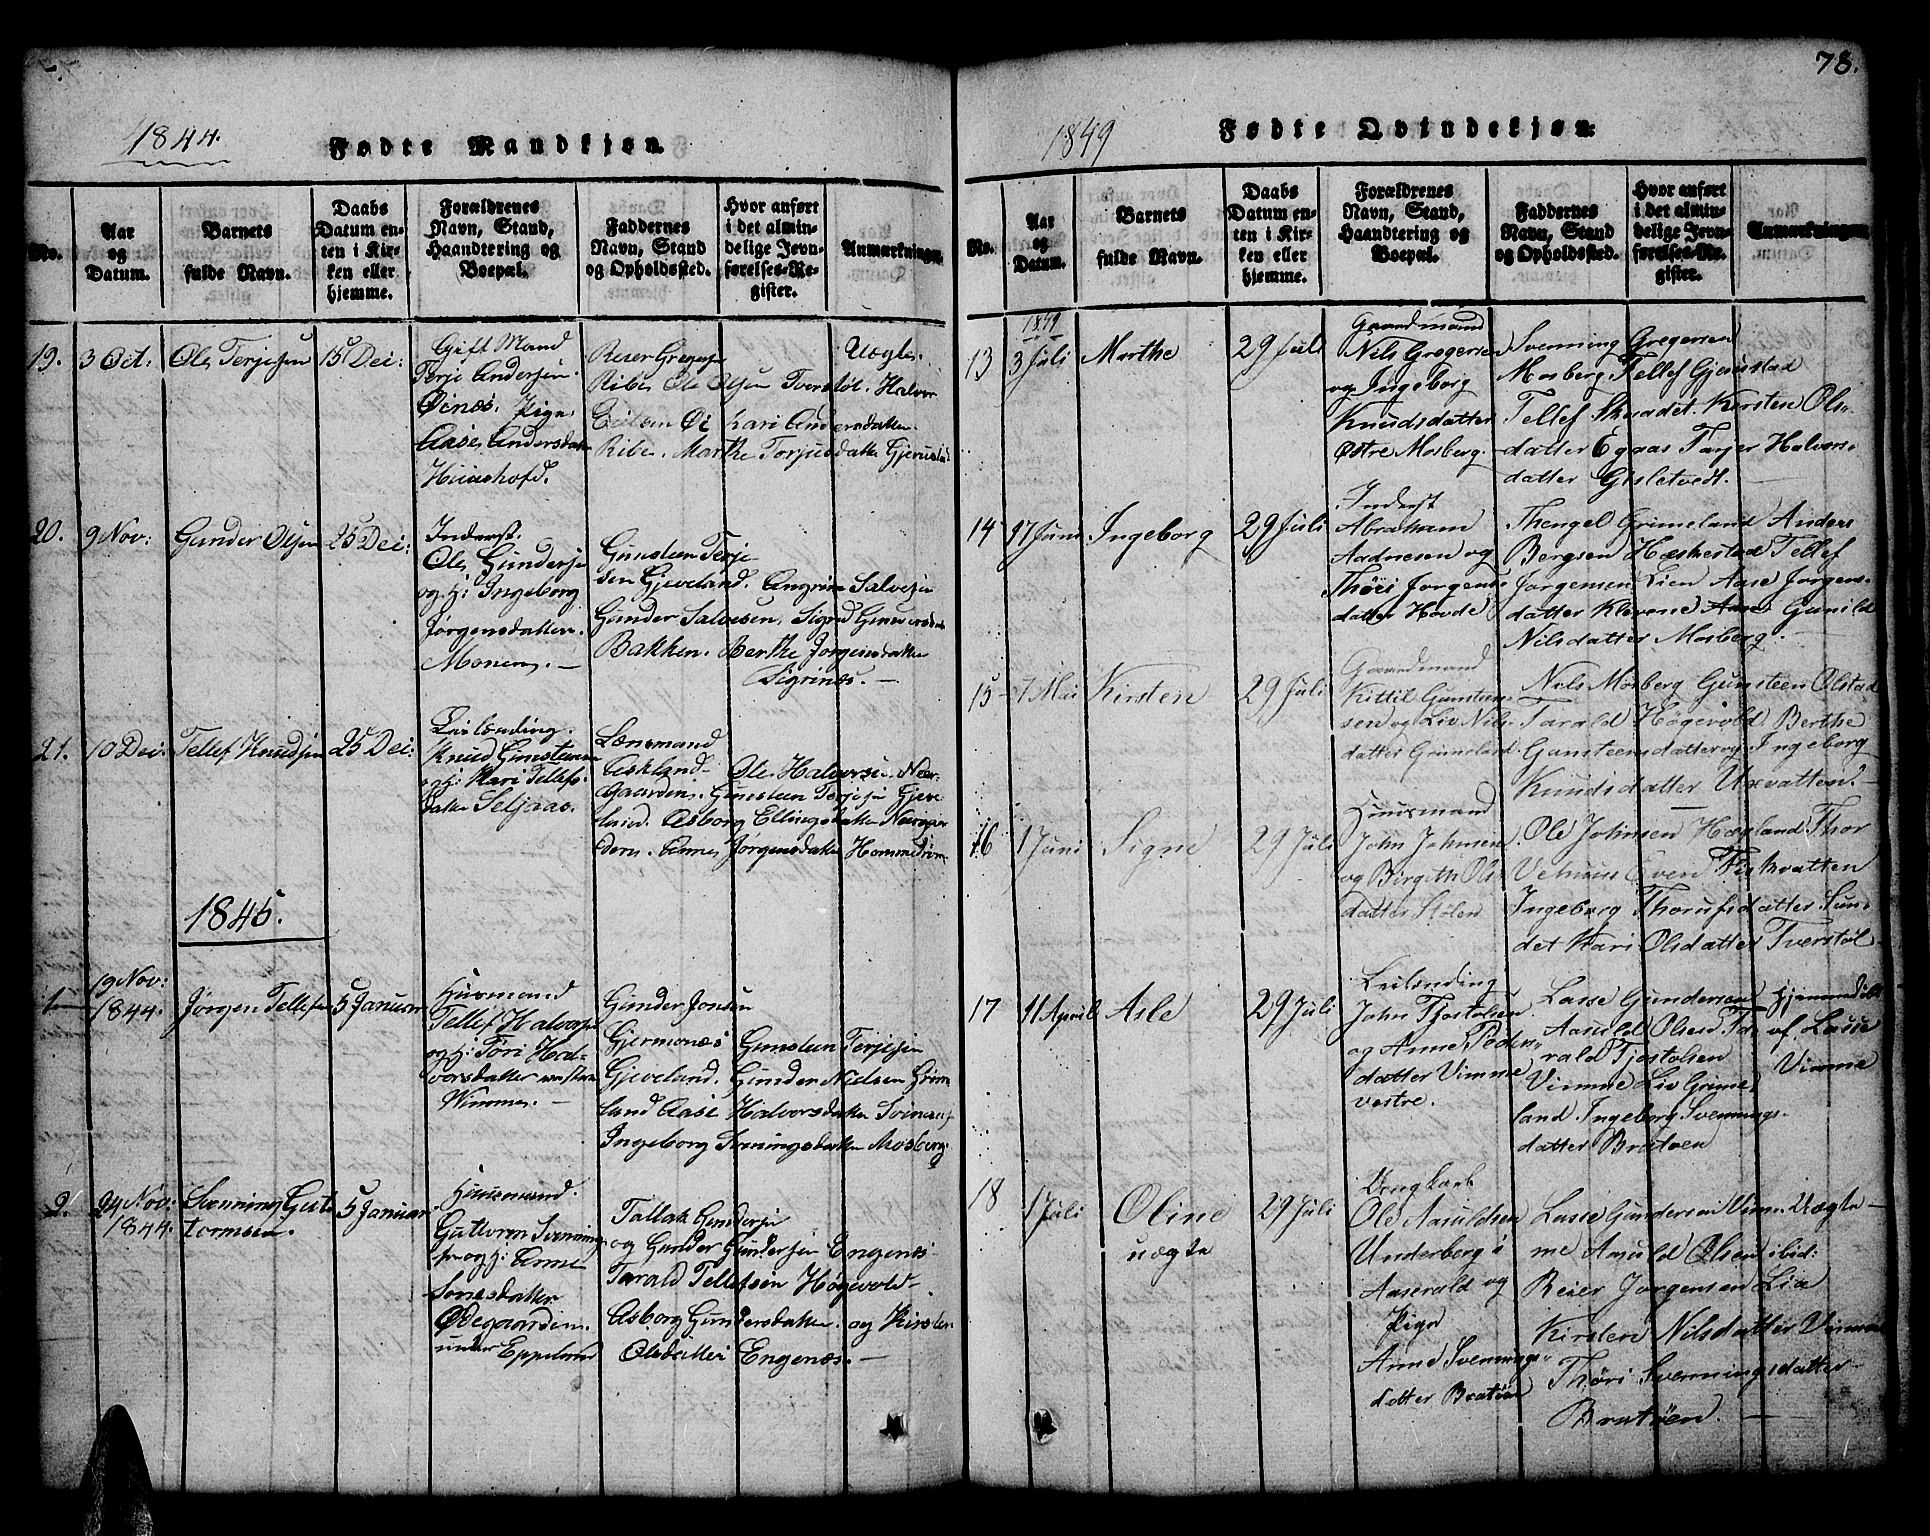 1844.
Fødte Mandkjøn.
No.
Aar og Datum.
Barnets fulde Navn.
Daabs Datum enten i Kirken eller hjemme.
Forældrenes Navn, Stand, Haandtering og Boepæl.
Faddernes Navn, Stand og Opholdssted.
Hvor anført i det almindelige Jevnførelses-Register.
Anmærkninger.
19.
3 Oct:
Ole Terjesen
15 Dei:
Gift Mand
Terje Andersen
Øinæs. Pige
Aase Andersdatter
Reier Gregersen
Ribe, Ole Olsen Tverstøl. Halvor
Øi Kari Andersdatter
Ribe. Marthe Torjusdatter Gjerustad
Uægte.
20.
9 Nov:
Gunder Olsen
25 Dei:
Inderst.
Ole Gundersen
og h: Ingeborg
Jørgensdatter
Monen. —
Gunsteen Terje-
sen Gjeveland. Angrim Salvesen
Gunder Salvesen, Sigrid Gundersdatter
Bakken. Berthe Jørgensdatter
Sigrinæs. —
21.
10 Dei:
Tellef Knudsen
25 Dei:
Leilending.
Knud Gunsteensen
og h: Kari Tellefs-
datter Seljaas.
Lænsmand
Askland
Ole Halvorsen
gaarden. Gunsteen Terjesen Gjeve-
land. Asborg Ellingsdatter
Anne Jørgensdatter Hommedrom
1845.
1
19 Nov:
1844.
Jørgen Tellefsen
5 Januar
Huusmand
Tellef Halvorsen
og h: Tøri Hal-
vorsdatter vestre
Wimme. —
Gunder Jonsen
Gjermonæs Gunsteen Terjesen
Gjeveland. Gunder Nielsen Grim-
land Aase Halvorsdatter
Ingeborg Svenningsdatter Mosberg
2.
24 Nov:
1844.
Svenning Gut-
tormsen.
5 Januar
Huusmand.
Guttorm Svenning-
sen og h: Anne
Jonesdatter
Ødegaarden
under Eppeland
Tallak Gundersen
og Gunder Gundersen Engenæs
Tarald Tellefsen Høgevold
Asborg Gundersdatter og Kirsten
Olsdatter Engenæs. —
78.
1849
Fødte Qvindekjøn.
No.
Aar og Datum.
Barnets fulde Navn.
Daabs Datum enten i Kirken eller hjemme.
Forældrenes Navn, Stand, Haandtering og Boepæl.
Faddernes Navn, Stand og Opholdssted.
Hvor anført i det almindelige Jevnførelses-Register.
Anmærkninger.
1849
13
3 Juli
Marthe
29 Juli
Gaardmand
Nils Gregersen
og Ingeborg
Knudsdatter
Østre Mosberg.
Svenning Gregersen
Mosberg. Tellef Gjerustad
Tellef Skaadet. Kirsten Ols-
datter Egaas Tarjer Halvors-
datter Gisletvedt. —
14
17 Juni
Ingeborg
29 Juli
Inderst
Abraham
Aadnesen og
Thøri Jorgens-
datter Hovde
Thengel Grimeland Anders
Bergsen Hæskestad Tellef
Jorgensen Lien Aase Jorgens-
datter Klevene Gunild
Nilsdatter Mosberg. —
15
7 Mai
Kirsten
29 Juli
Gaardmand
Kittil Gunsteen-
sen og Liv Nils-
datter Grimeland.
Nils Mosberg Gunsteen Olstad
Tarald Høgevold Berthe
Gunsteensdatter og Ingeborg
Knudsdatter Uxevatten. —
16
1 Juni
Signe
29 Juli
Huusmand
John Johnsen
og Birgeth Ols-
datter Stølen
Ole Johnsen Hægland Thor
Vehuus Even Fiskvatten
Ingeborg Thorufsdatter Sun-
det Kari Olsdatter Tverstøl
17
11 April
Asle
29 Juli
Leilending
John Tjostolsen
og Anne Peders-
datter Vimme
vestre.
Lasse Gundersen
Aasuld Olsen Ta-
rald Tjostolsen
Vimme Liv Grime-
land. Ingeborg Svennings-
datter Bratøen
Hjemmedøbt
af Lasse
Vimme
18
1 Juli
Oline
uægte
29 Juli
Ungkarl
Ole Aasuldsen
Underberg i
Aaserald og
Pige
Anne Svennings-
datter Bratøen
Lasse Gundersen Vim-
me Aasuld Olsen ibid:
Reier Jorgensen Lien
Kirsten Nilsdatter Vimme
Thøri Svenningsdatter
Bratøen. —
Uægte —